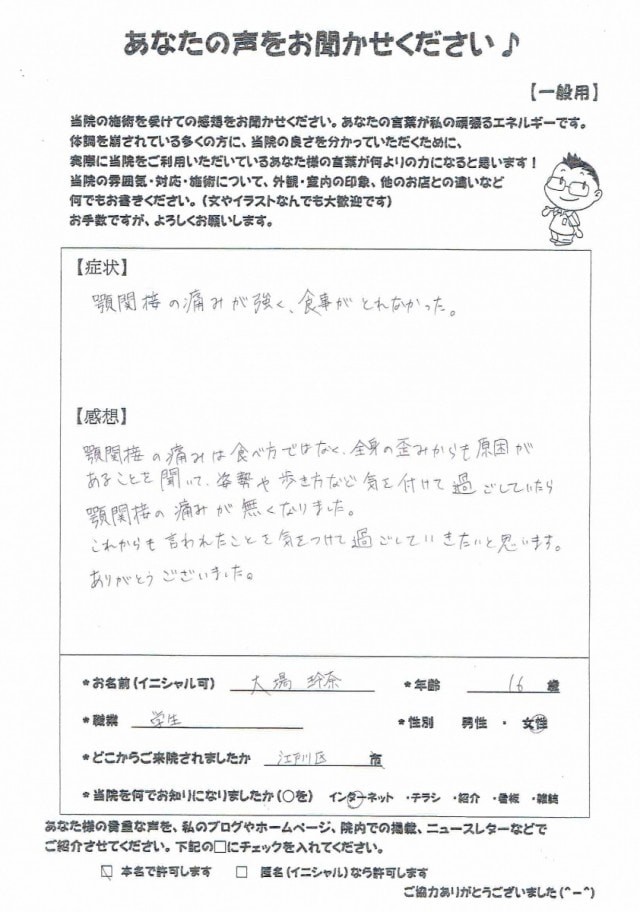 あなたの声をお聞かせください♪
【一般用】
当院の施術を受けての感想をお聞かせください。あなたの言葉が私の頑張るエネルギーです。
体調を崩されている多くの方に、当院の良さを分かっていただくために、
実際に当院をご利用いただいているあなた様の言葉が何よりの力になると思います！
当院の雰囲気・対応・施術について、外観・室内の印象、他のお店との違いなど
何でもお書きください。（文やイラストなんでも大歓迎です）
お手数ですが、よろしくお願いします。
【症状】
顎関接の痛みが強く、食事がとれなかった。
【感想】
顎関接の痛みは食べ方ではなく、全身の歪みからも原因が
あることを聞いて、姿勢や歩き方など気を付けて過ごしていたら
顎関接の痛みが無くなりました。
これからも言われたことを気をつけて過ごしていきたいと思います。
ありがとうございました。
*お名前（イニシャル可） 大場 *年齢 16 歳
*職業 学生 *性別 男性 ・ 女性
*どこからご来院されましたか 江戸川区 市
*当院を何でお知りになりましたか（○を） インターネット ・チラシ ・紹介 ・看板 ・雑誌
あなた様の貴重な声を、私のブログやホームページ、院内での掲載、ニュースレターなどで
ご紹介させてください。下記の□にチェックを入れてください。
☑ 本名で許可します □ 匿名（イニシャル）なら許可します
ご協力ありがとうございました（^－^）